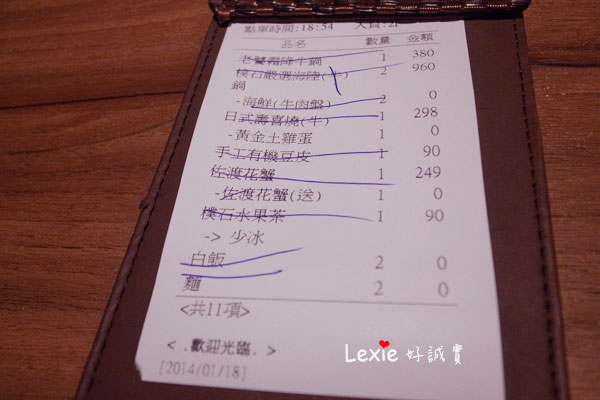 點單時間:18:54 人員:21
品名 數量 金額
老饕霜降牛鍋 1 380
樸石嚴選海陸(牛) 2 960
鍋
-海鮮(牛肉盤) 2 0
日式壽喜燒(牛) 1 298
-黃金土雞蛋 1 0
手工有機豆皮 1 90
佐渡花蟹 1 249
-佐渡花蟹(送) 1 0
樸石水果茶 1 90
-> 少冰
白飯 2 0
麵 2 0
<共11項>
< .歡迎光臨. >
[2014/01/18]
Lexie 好誠實